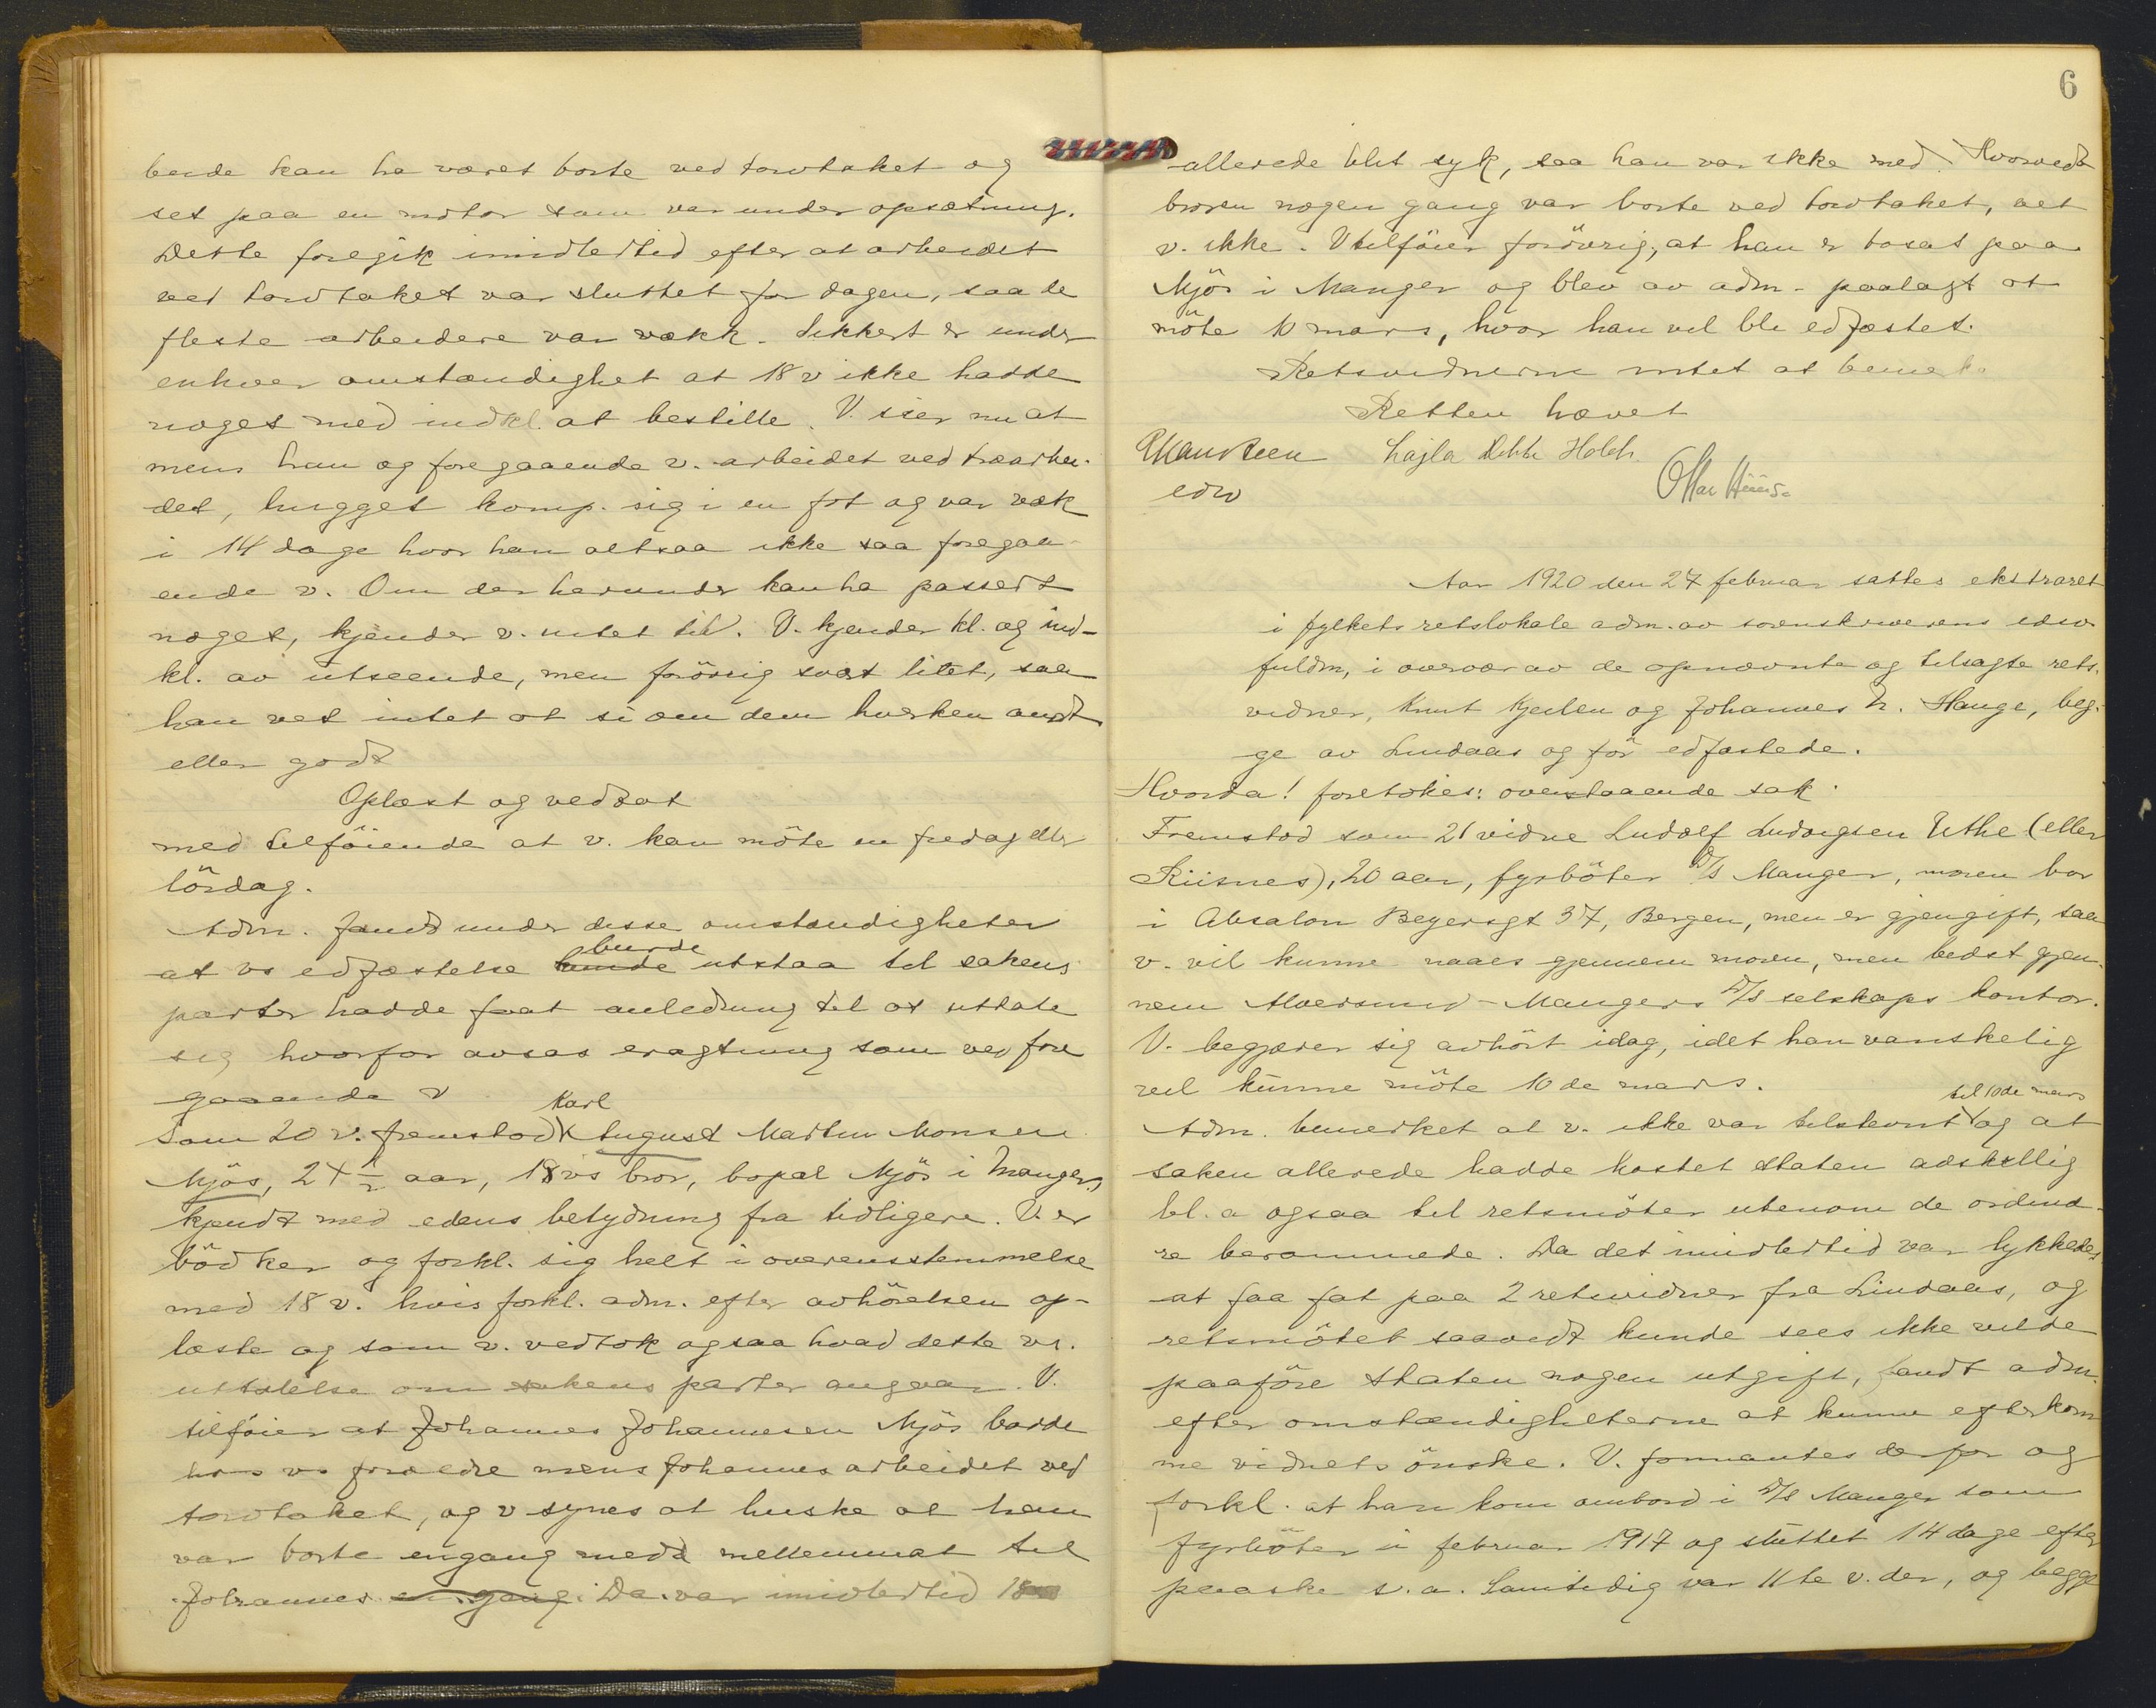 beide kan ha været borte ved torvtaket og
set paa en motor som var under opsætning.
Dette foregik imidlertid efter at arbeidet
ved torvtaket var sluttet for dagen, saa de
fleste arbeidere var vækk. Sikkert er under
enhver omstændighet at 18 v ikke hadde
noget med indkl. at bestille. V. sier nu at
mens han og foregaaende v. arbeidet ved træarbei-
det, hugget komp. sig i en fot og var væk
i 14 dage hvor han altsaa ikke saa foregaa-
ende v. Om der herunder kan ha passert
noget, kjender v. intet til. V. kjender kl. og ind-
kl. av utseende, men forövrig svært litet, saa
han vet intet at si om dem hverken ondt
eller godt
Oplæst og vedtat
med tilföiende at v. kan möte en fredag eller
lördag.
Adm. fandt under disse omstændigheter
at vs edfæstelse burde utstaa til sakens
parter hadde faat anledning til at uttale
sig hvorfor avsas eragtning som ved fore
gaaende v
Karl
Som 20 v. fremstod August Martin Monsen
Mjös, 24 1/2 aar, 18 vs bror, bopæl Mjös i Manger,
kjendt med edens betydning fra tidligere. V. er
bödker og forkl. sig helt i overensstemmelse
med 18 v. hvis forkl. adm. efter avhörelsen op-
læste og som v. vedtok ogsaa hvad dette vs.
uttalelse om sakens parter angaar. V.
tilföier at Johannes Johannesen Mjös bodde
hos vs forældre mens Johannes arbeidet ved
torvtaket, og v synes at huske at han
var borte engang med mellemmat til
Johannes en gang. Da var imidlertid 18
6
allerede blit syk, saa han var ikke med. Hvorvidt
broren nogen gang var borte ved torvtaket, vet
v. ikke. V tilföier forövrig, at han er bosat paa
Mjös i Manger og blev av adm. paalagt at
möte 10 mars, hvor han vil bli edfæstet.
Retsvidnerne intet at bemerke
Retten hævet
Lajla Holch
edsv
Aar 1920 den 27 februar sattes ekstraret
i fylkets retslokale adm. av sorenskriverens edsv
fuldm, i overvær av de opnævnte og tilsagte rets-
vidner, Knut Kjeilen og Johannes H. Hauge, beg-
ge av Lindaas og för edfæstede.
Hvorda! foretokes: ovenstaaende sak.
Fremstod som 21 vidne Ludolf Ludvigsen Uthe (eller
Riisnes), 20 aar, fyrböter D/S Manger, moren bor
i Absalon Beyersgt 37, Bergen, men er gjengift, saa
v. vil kunne naaes gjennem moren, men bedst gjen-
nem Alversund-Mangers D/S selskaps kontor.
V. begjærer sig avhört idag, idet han vanskelig
vil kunne möte 10 de mars.
til 10de mars
Adm. bemerket at v. ikke var tilstevnt og at
saken allerede hadde kostet staten adskillig
bl. a ogsaa til retsmöter utenom de ordinæ-
re berammede. Da det imidlertid var lykkedes
at faa fat paa 2 retsvidner fra Lindaas, og
retsmötet saavidt kunde sees ikke vilde
paaföre staten nogen utgift, fandt adm.
efter omstændigheterne at kunne efterkom
me vidnets önske. V. formantes derfor og
forkl. at han kom ombord i D/S Manger som
fyrböter i februar 1917 og sluttet 14 dage efter
paaske s.a. Samtidig var 11te v. der, og begge